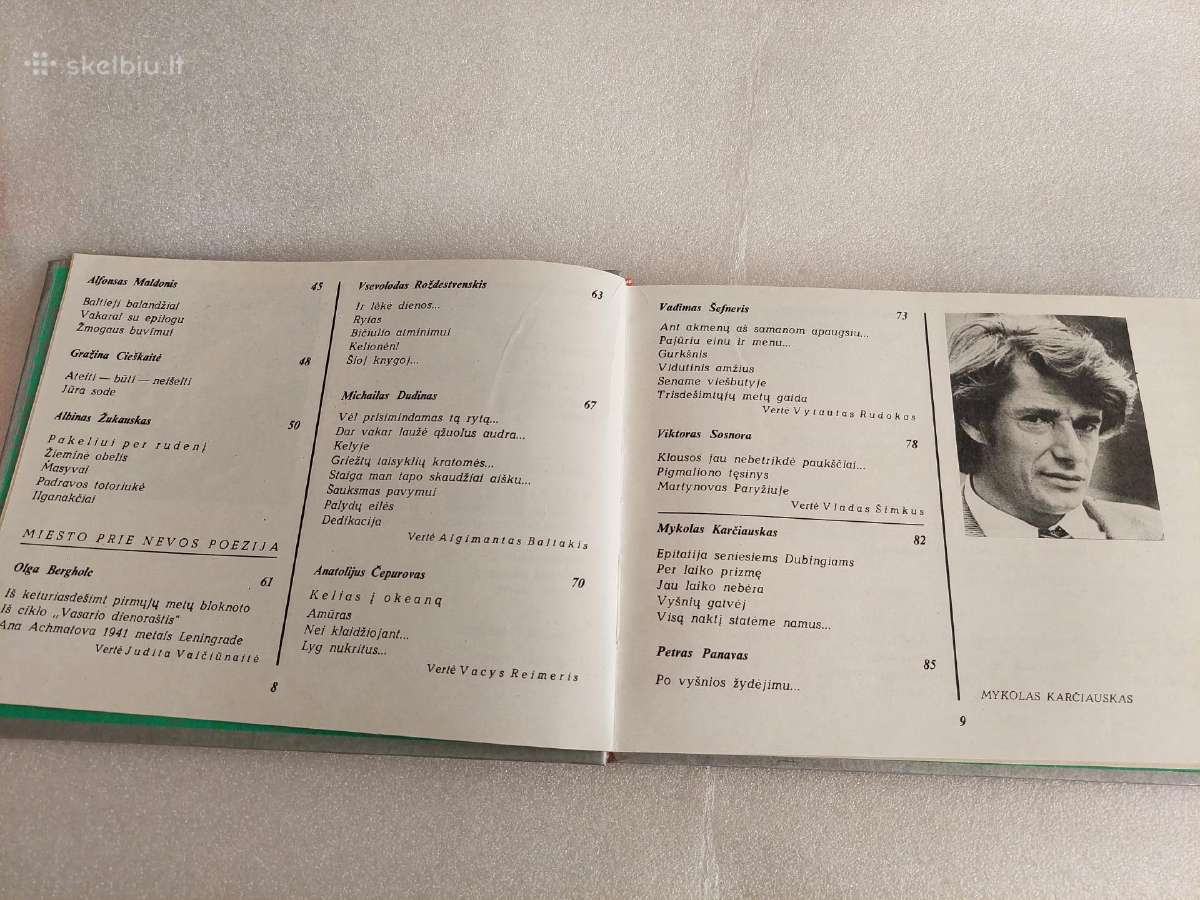 skelbiu.lt
Alfonsas Maldonis 45
Baltieji balandžiai
Vakarai su epilogu
Žmogaus buvimui
Gražina Cieškaitė 48
Ateiti — būti — neišeiti
Jūra sode
Albinas Žukauskas 50
Pakeliui per rudenį
Žieminė obelis
Masyvai
Padravos totoriukė
Ilganakčiai
MIESTO PRIE NEVOS POEZIJA
Olga Bergholc 61
Iš keturiasdešimt pirmųjų metų bloknoto
Iš ciklo „Vasario dienoraštis“
Ana Achmatova 1941 metais Leningrade
Vertė Judita Vaičiūnaitė
8
Vsevolodas Roždestvenskis 63
Ir lėkė dienos...
Rytas
Bičiulio atminimui
Kelionėn!
Šioj knygoj...
Michailas Dudinas 67
Vėl prisimindamas tą rytą...
Dar vakar laužė ąžuolus audra...
Kelyje
Griežtų taisyklių kratomės...
Staiga man tapo skaudžiai aišku...
Šauksmas pavymui
Palydų eilės
Dedikacija
Vertė Algimantas Baltakis
Anatolijus Čepurovas 70
Kelias į okeaną
Amūras
Nei klaidžiojant...
Lyg nukritus...
Vertė Vacys Reimeris
Vadimas Šefneris 73
Ant akmenų aš samanom apaugsiu...
Pajūriu einu ir menu...
Gurkšnis
Vidutinis amžius
Sename viešbutyje
Trisdešimtųjų metų gaida
Vertė Vytautas Rudokas
Viktoras Sosnora 78
Klausos jau nebetrikdė paukščiai...
Pigmaliono tęsinys
Martynovas Paryžiuje
Vertė Vladas Šimkus
Mykolas Karčiauskas 82
Epitafija seniesiems Dubingiams
Per laiko prizmę
Jau laiko nebėra
Vyšnių gatvėj
Visą naktį statėme namus...
Petras Panavas 85
Po vyšnios žydėjimu...
MYKOLAS KARČIAUSKAS
9